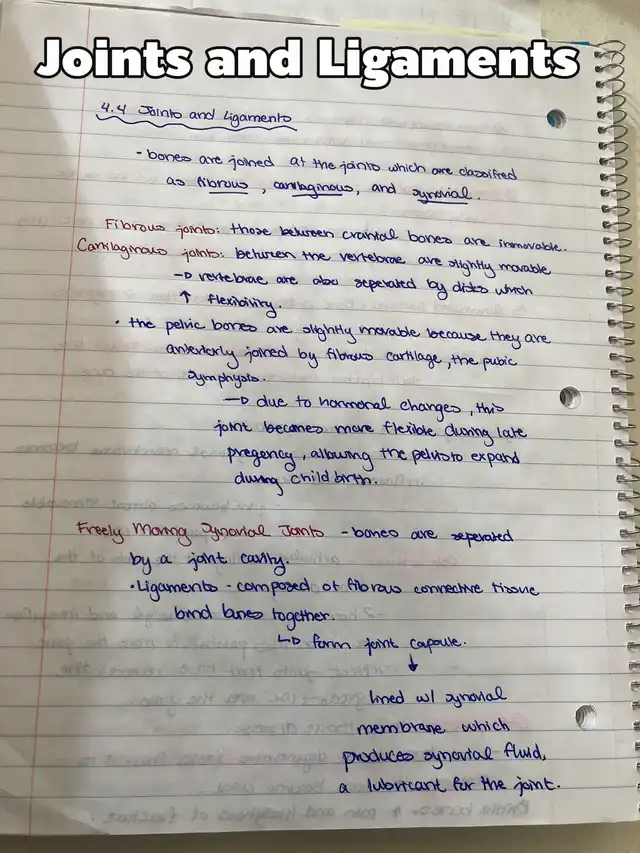 Joints and Ligaments
4.4 Joints and Ligaments
- bones are joined at the joints which are classified
as fibrous, cartilaginous, and synovial.
Fibrous joints: those between cranial bones are immovable.
Cartilaginous joints: between the vertebrae are slightly movable
→ vertebrae are also seperated by disks which
↑ flexibility.
• the pelvic bones are slightly movable because they are
anteriorly joined by fibrous cartilage, the pubic
symphysis.
→ due to hormonal changes, this
joint becomes more flexible during late
pregency, allowing the pelvis to expand
during child birth.
Freely Moving Synovial Joints - bones are seperated
by a joint cavity.
• Ligaments - composed of fibrous connective tissue
bind bones together.
↳ form joint capsule.
↓
lined w/ synovial
membrane which
produces synovial fluid,
a lubricant for the joint.